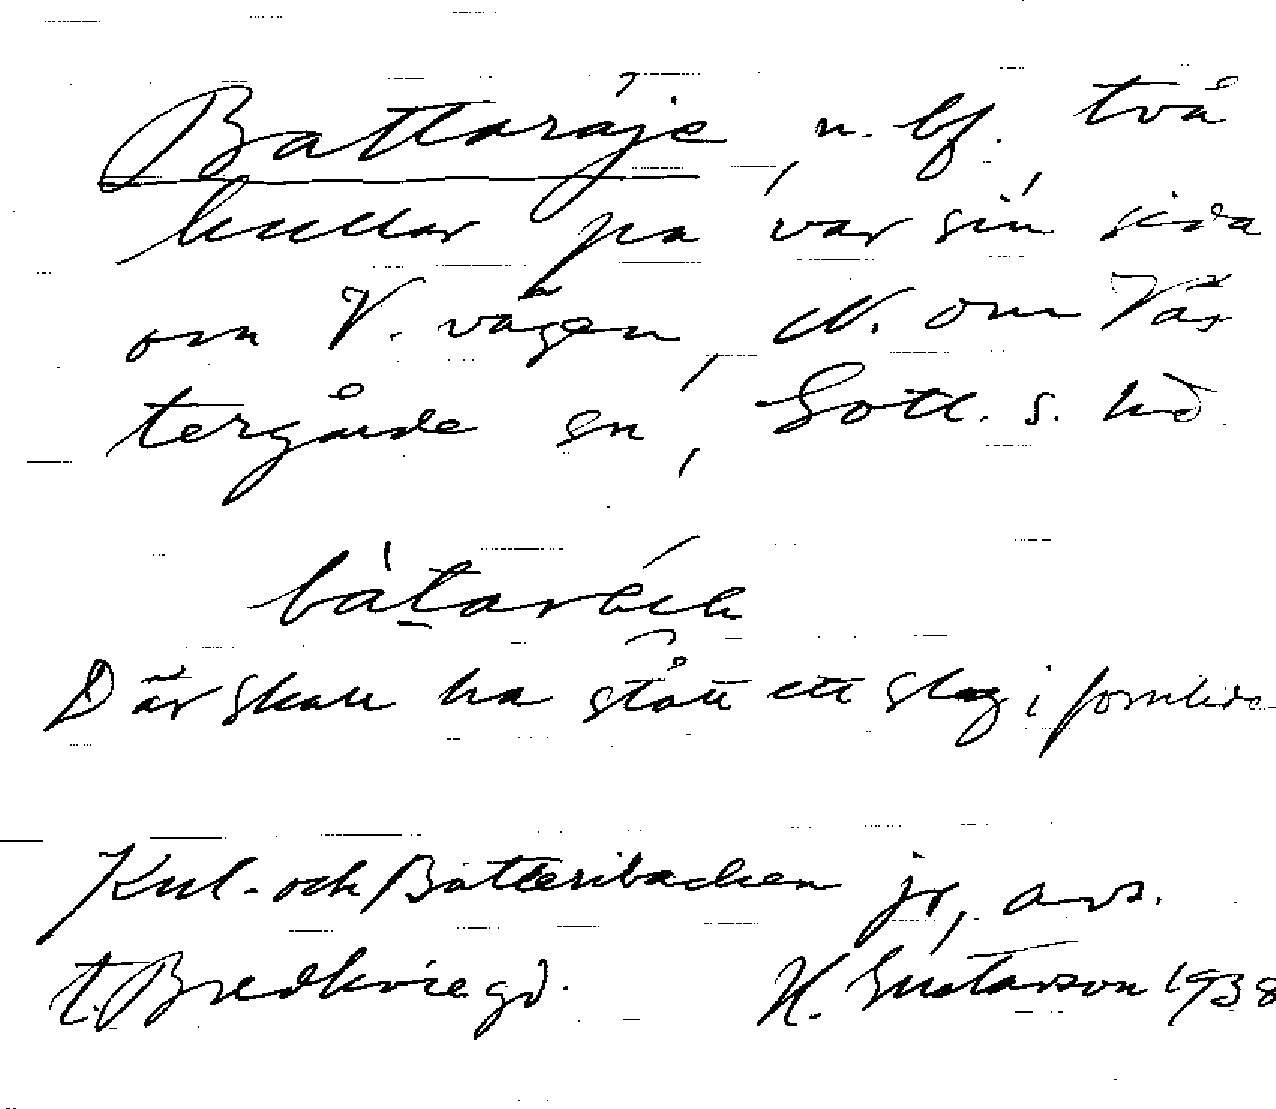 Battaräje, n. bf., två
kullar på var sin sida
om V. vägen, N. om Väs
tergårde en, Gotl. s. hd
Där skall ha stått ett slag i forntide
Kul- och Batteribacken jr, avs.
t. Bredkvie gd. H. Gustavson 1938